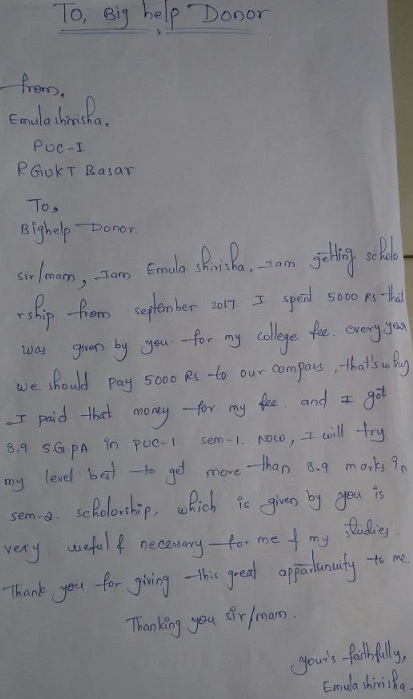 To, Big help Donor
from,
Emula shirisha.
PUC-I
RGUKT Basar
To,
Bighelp Donor.
sir/mam, Iam Emula shirisha. Iam getting scholo
rship from september 2017. I spent 5000 Rs that
was given by you for my college fee. every year
we should pay 5000 Rs to our compass, that's why
I paid that money for my fee. and I got
8.9 S.G.PA in PUC-1 sem-1. Now, I will try
my level best to get more than 8.9 marks in
sem-2. scholorship, which is given by you is
very useful & necessary for me & my studies.
Thank you for giving this great oppartunuity to me.
Thanking you sir/mam.
your's faithfully,
Emula shirisha.